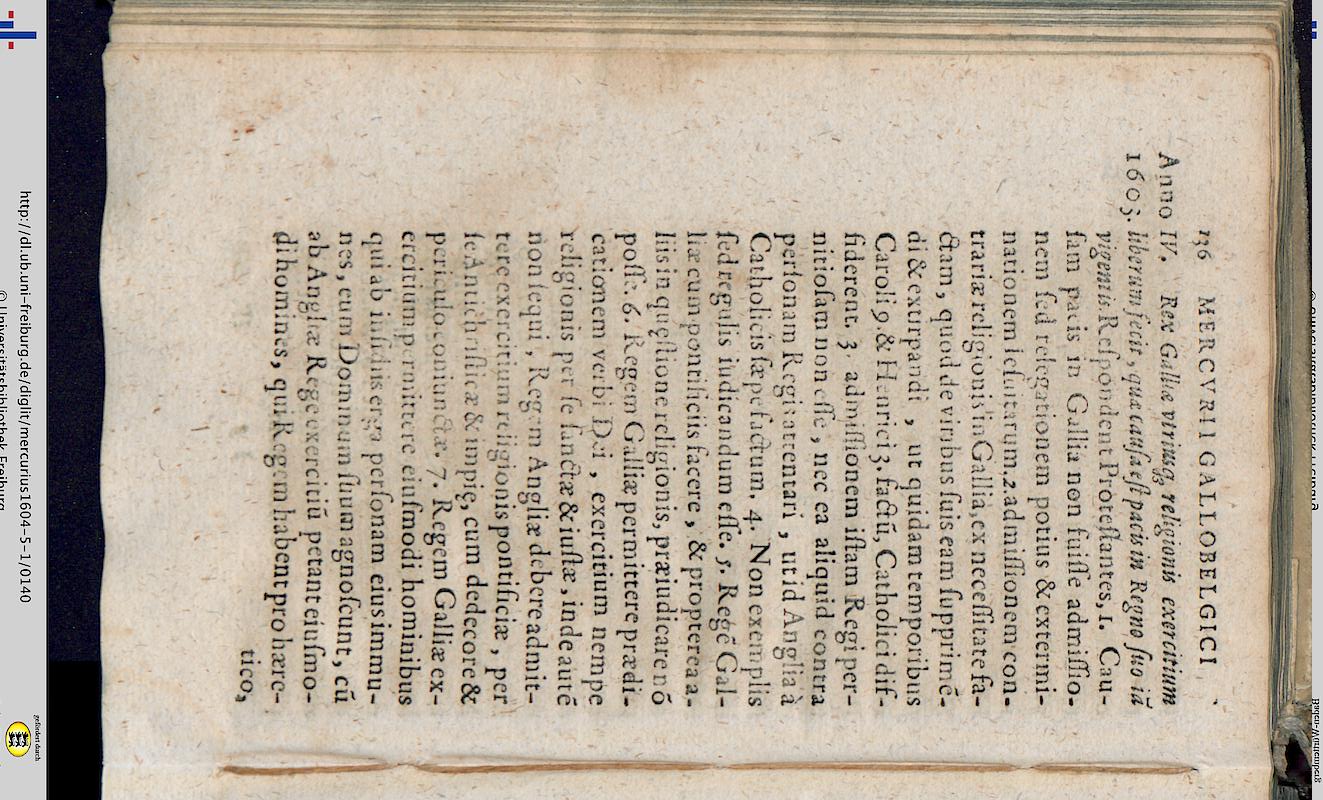 136 MERCVRII GALLOBELGICI
Anno IV. Rex Galliæ viriusq; religionis exercitium
1603. liberum fecit, quæ causa est pacis in Regno suo iā
vigentis. Respondent Protestantes, 1. Cau-
sam pacis in Gallia non fuisse admissio-
nem sed relegationem potius & extermi-
nationem Iesuitarum. 2. admissionem con-
trariæ religionis in Gallia, ex necessitate fa-
ctam, quod de viribus suis eam supprimē-
di & extirpandi, ut quidam temporibus
Caroli 9. & Henrici 3. factū, Catholici dif-
fiderent. 3. admissionem istam Regi per-
nitiosam non esse, nec ea aliquid contra
personam Regis attentari, ut id Anglia à
Catholicis sæpe factum, 4. Non exemplis
sed regulis iudicandum esse. 5. Regē Gal-
liæ cum pontificiis facere, & propterea a-
liis in quęstione religionis, præiudicare nō
posse. 6. Regem Galliæ permittere prædi-
cationem verbi Dei, exercitium nempe
religionis per se sanctæ & iustæ, inde autē
non sequi, Regem Angliæ debere admit-
tere exercitium religionis pontificiæ, per
se Antichristicæ & impię, cum dedecore &
periculo coniunctæ, 7. Regem Galliæ ex-
ercitium permittere eiusmodi hominibus
qui ab insidiis erga personam eius immu-
nes cum Dominum suum agnoscunt, cū
ab Angliæ Rege exercitiū petant eiusmo-
di homines, qui Regem habent pro hære-
tico,
http://dl.ub.uni-freiburg.de/diglit/mercurius1604-5-1/0140
© Universitätsbibliothek Freiburg
gefördert durch